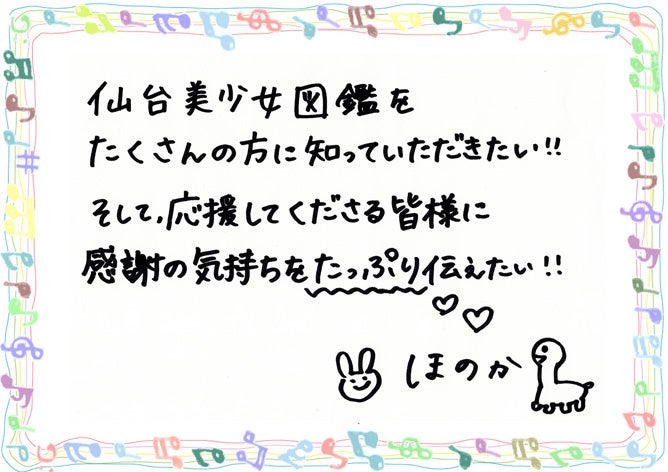 仙台美少女図鑑を
たくさんの方に知っていただきたい!!
そして、応援してくださる皆様に
感謝の気持ちをたっぷり伝えたい!!
ほのか